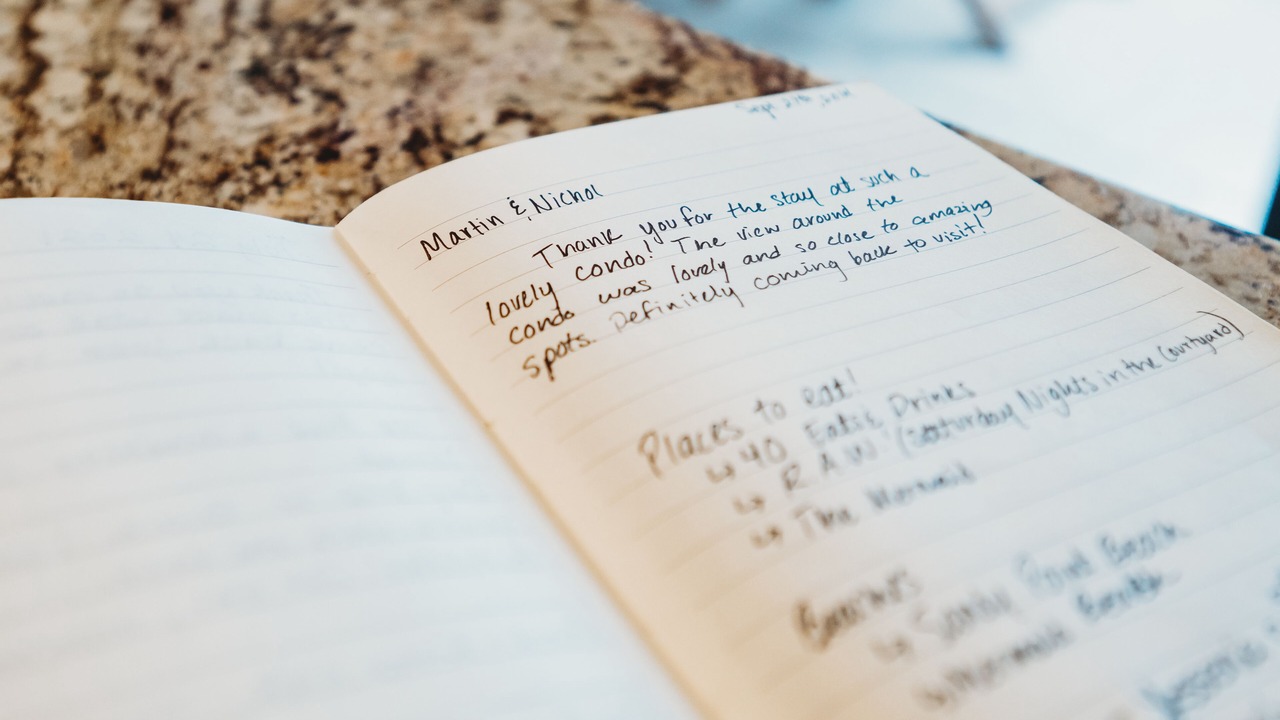 Sept 27th,
Martin & Nichol
Thank you for the stay at such a
lovely condo! The view around the
condo was lovely and so close to amazing
spots. Definitely coming back to visit!
Places to eat!
↳ 40 Eats & Drinks
↳ RAW (Saturday Nights in the Courtyard)
↳ The Mermaid
Beaches
↳ Sandy Point Beach
↳ Mermaid Beach